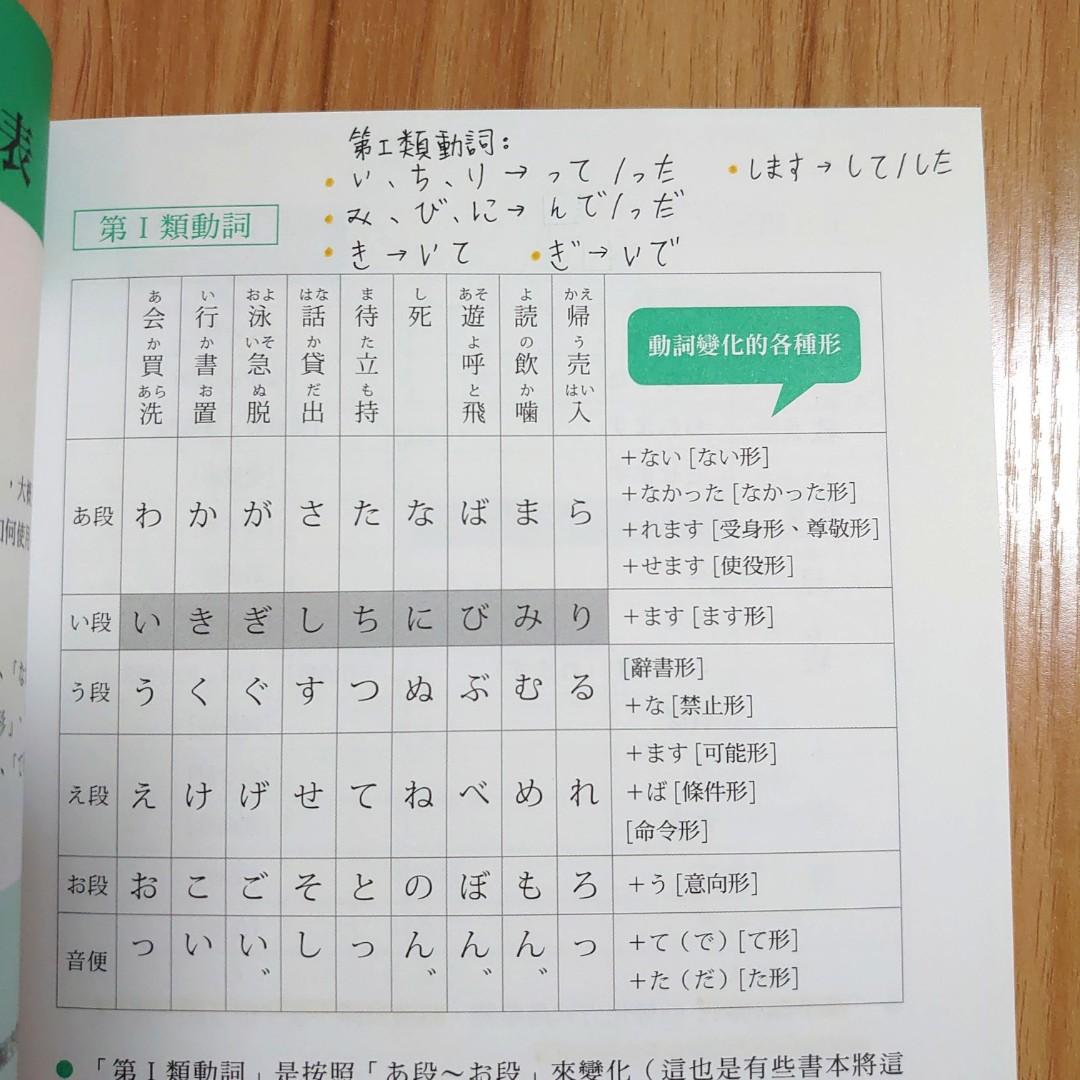 表
第I類動詞:
い、ち、り→って/った
・します→して/した
み、び、に→んで/っだ
き→いて
・ぎ→いで
第Ⅰ類動詞
あ い およ はな ま し あそ よ かえ
会 行 泳 話 待 死 遊 読 帰
か か いそ か た よ の う
買 書 急 貸 立 呼 飲 売
あら お ぬ だ も と か はい
洗 置 脱 出 持 飛 噛 入
動詞變化的各種形
あ段 わ か が さ た な ば ま ら
+ない [ない形]
+なかった [なかった形]
+れます [受身形、尊敬形]
+せます [使役形]
い段 い き ぎ し ち に び み り +ます [ます形]
う段 う く ぐ す つ ぬ ぶ む る
[辭書形]
+な [禁止形]
え段 え け げ せ て ね べ め れ
+ます [可能形]
+ば [條件形]
[命令形]
お段 お こ ご そ と の ぼ も ろ +う [意向形]
音便 っ い い゛ し っ ん゛ ん゛ ん゛ っ
+て(で)[て形]
+た(だ)[た形]
●「第Ⅰ類動詞」是按照「あ段~お段」來變化(這也是有些書本將這